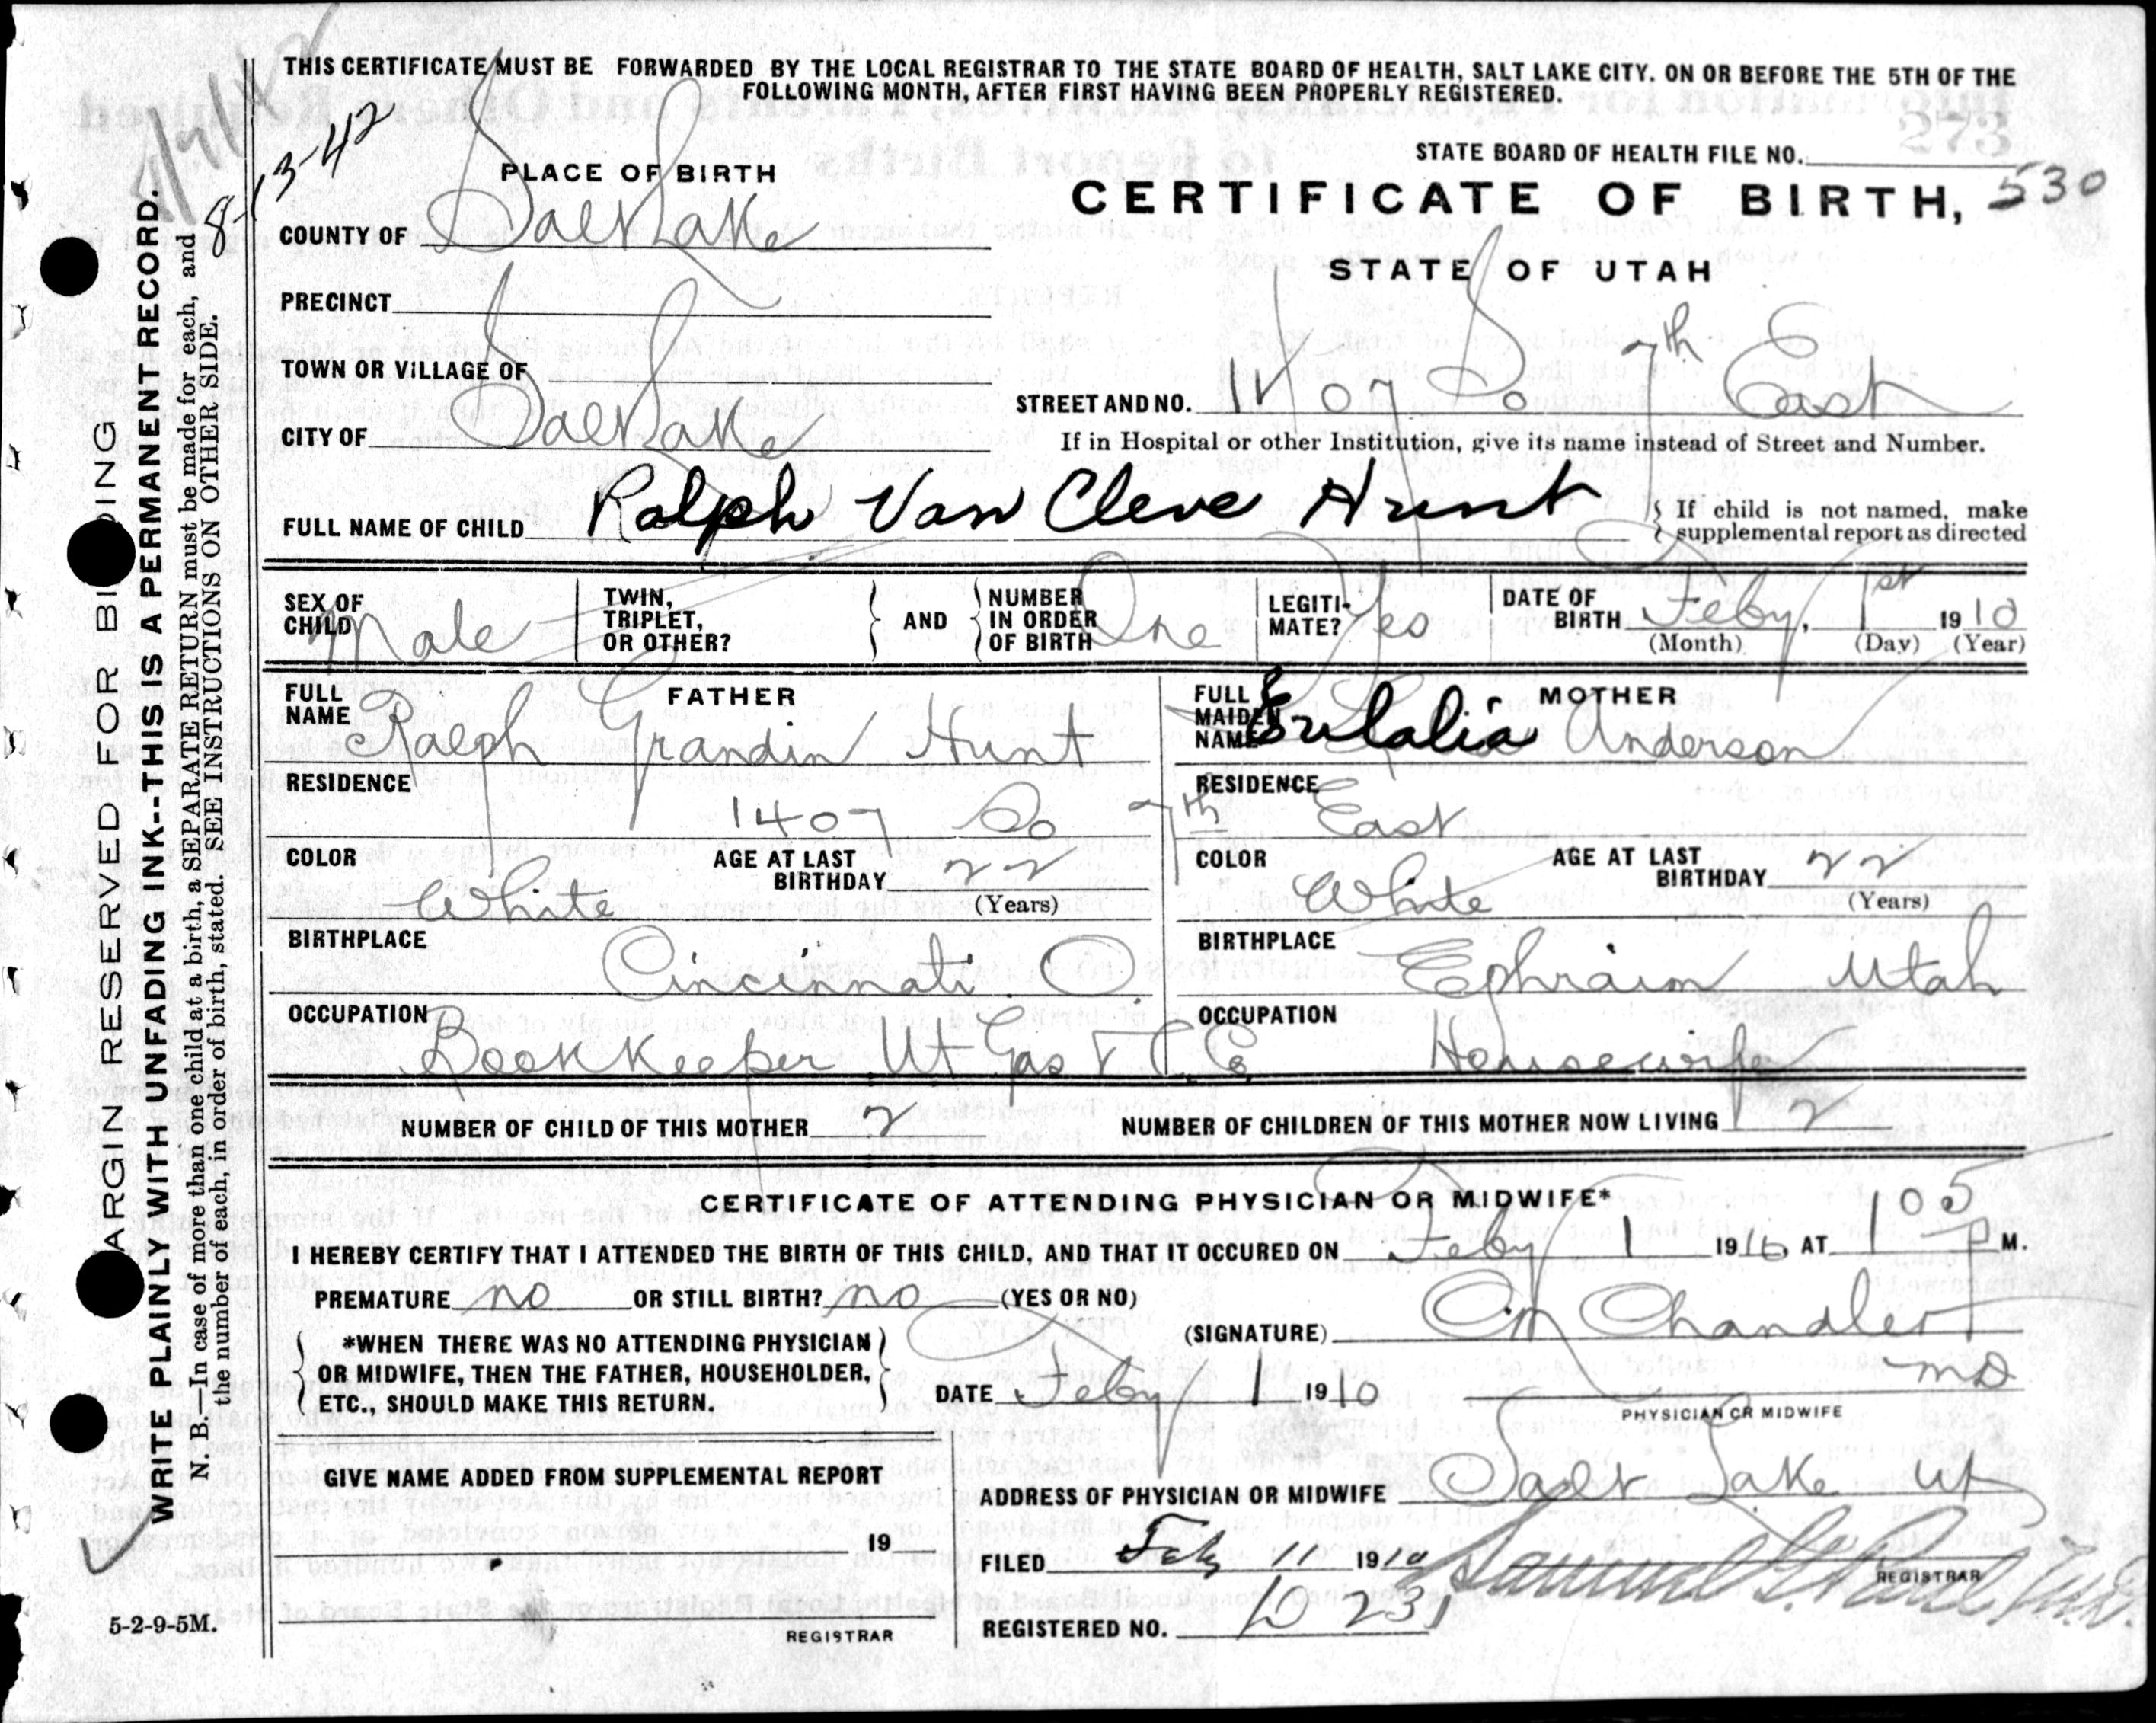 THIS CERTIFICATE MUST BE FORWARDED BY THE LOCAL REGISTRAR TO THE STATE BOARD OF HEALTH, SALT LAKE CITY. ON OR BEFORE THE 5TH OF THE
FOLLOWING MONTH, AFTER FIRST HAVING BEEN PROPERLY REGISTERED.
8-13-42
STATE BOARD OF HEALTH FILE NO.
273
530
PLACE OF BIRTH
CERTIFICATE OF BIRTH,
STATE OF UTAH
COUNTY OF Salt Lake
PRECINCT
TOWN OR VILLAGE OF
STREET AND NO. 1407 So 7th East
CITY OF Salt Lake
If in Hospital or other Institution, give its name instead of Street and Number.
FULL NAME OF CHILD Ralph Van Cleve Hunt
{ If child is not named, make
supplemental report as directed
SEX OF CHILD Male
TWIN, TRIPLET, OR OTHER? } AND { NUMBER IN ORDER OF BIRTH One
LEGITIMATE? Yes
DATE OF BIRTH Feby, 1st 1910
(Month) (Day) (Year)
FATHER
FULL NAME Ralph Grandin Hunt
MOTHER
FULL MAIDEN NAME Eulalia Anderson
RESIDENCE 1407 So 7th
RESIDENCE East
COLOR White AGE AT LAST BIRTHDAY 22 (Years)
COLOR White AGE AT LAST BIRTHDAY 22 (Years)
BIRTHPLACE Cincinnati O.
BIRTHPLACE Ephraim Utah
OCCUPATION Bookkeeper Ut Gas & C. Co
OCCUPATION Housewife
NUMBER OF CHILD OF THIS MOTHER 2
NUMBER OF CHILDREN OF THIS MOTHER NOW LIVING 2
CERTIFICATE OF ATTENDING PHYSICIAN OR MIDWIFE*
I HEREBY CERTIFY THAT I ATTENDED THE BIRTH OF THIS CHILD, AND THAT IT OCCURED ON Feby 1 1910, AT 1 05 P M.
PREMATURE no OR STILL BIRTH? no (YES OR NO)
{ *WHEN THERE WAS NO ATTENDING PHYSICIAN
OR MIDWIFE, THEN THE FATHER, HOUSEHOLDER,
ETC., SHOULD MAKE THIS RETURN. }
(SIGNATURE) CM Chandler
MD
DATE Feby 1 1910
PHYSICIAN OR MIDWIFE
GIVE NAME ADDED FROM SUPPLEMENTAL REPORT
19
REGISTRAR
ADDRESS OF PHYSICIAN OR MIDWIFE Salt Lake Ut
FILED Feby 11 1910 Samuel G. Paul M.D.
REGISTRAR
REGISTERED NO. 10 231
5-2-9-5M.
MARGIN RESERVED FOR BINDING
WRITE PLAINLY WITH UNFADING INK--THIS IS A PERMANENT RECORD.
N. B.—In case of more than one child at a birth, a SEPARATE RETURN must be made for each, and
the number of each, in order of birth, stated. SEE INSTRUCTIONS ON OTHER SIDE.